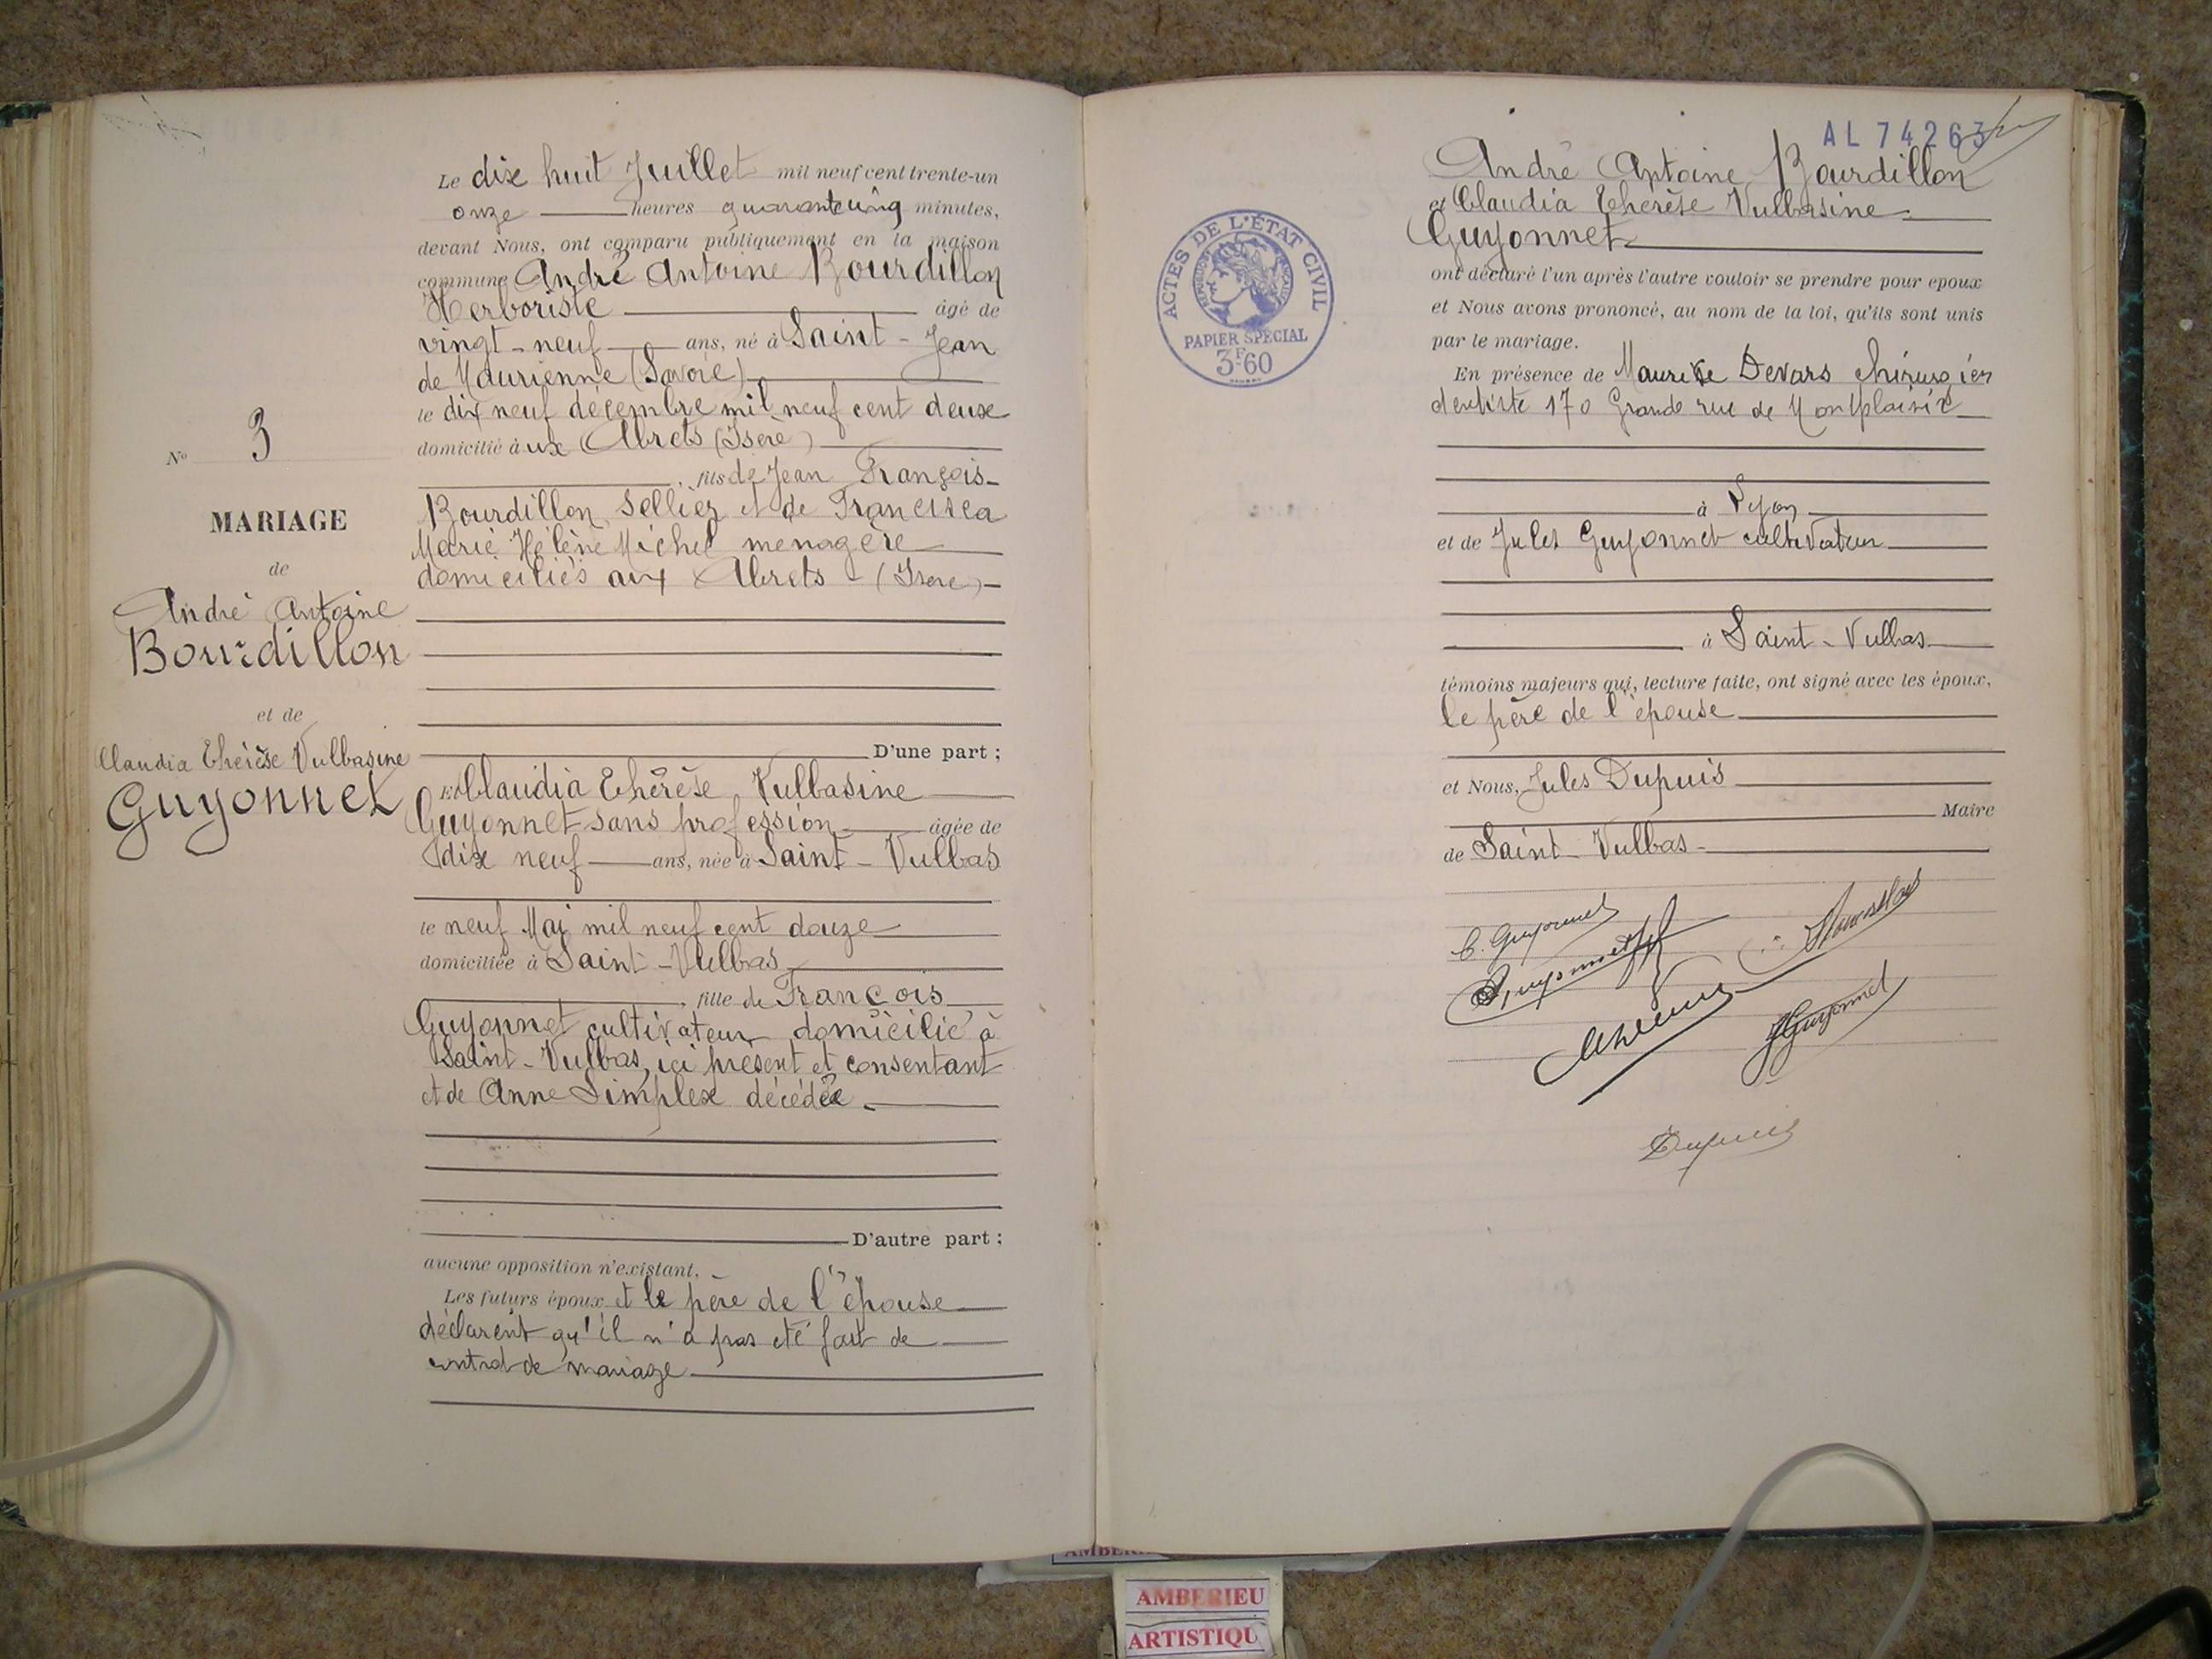 N° 3
MARIAGE
de
André Antoine
Bourdillon
et de
Claudia Thérèse Vulbasine
Guyonnet
Le dix huit Juillet mil neuf cent trente-un
onze heures quarante cinq minutes,
devant Nous, ont comparu publiquement en la maison
commune André Antoine Bourdillon
Herboriste âgé de
vingt-neuf ans, né à Saint-Jean
de Maurienne (Savoie)
le dix neuf décembre mil neuf cent deux
domicilié à ux Abrets (Isère)
, fils de Jean François
Bourdillon Sellier et de Francisca
Marie Hélène Michel menagère
domiciliés aux Abrets - (Isère)
D'une part ;
Et Claudia Thérèse Vulbasine
Guyonnet sans profession âgée de
dix neuf ans, née à Saint-Vulbas
le neuf Mai mil neuf cent douze
domiciliée à Saint-Vulbas
, fille de François
Guyonnet cultivateur domicilié à
Saint-Vulbas, ici présent et consentant
et de Anne Simplex décédée.
D'autre part ;
aucune opposition n'existant,
Les futurs époux et le père de l'épouse
déclarent qu'il n'a pas été fait de
contrat de mariage
AL 74263
ACTES DE L'ÉTAT CIVIL
PAPIER SPÉCIAL
3F60
André Antoine Bourdillon
et Claudia Thérèse Vulbasine
Guyonnet
ont déclaré l'un après l'autre vouloir se prendre pour epoux
et Nous avons prononcé, au nom de la loi, qu'ils sont unis
par le mariage.
En présence de Maurice Devars chirurgien
dentiste 170 Grande rue de Montplaisir
à Lyon
et de Jules Guyonnet cultivateur
à Saint-Vulbas
témoins majeurs qui, lecture faite, ont signé avec les époux,
le père de l'épouse
et Nous, Jules Dupuis
Maire
de Saint-Vulbas
C. Guyonnet
Guyonnet
JGuyonnet
Dupuis
AMBERIEU
ARTISTIQU